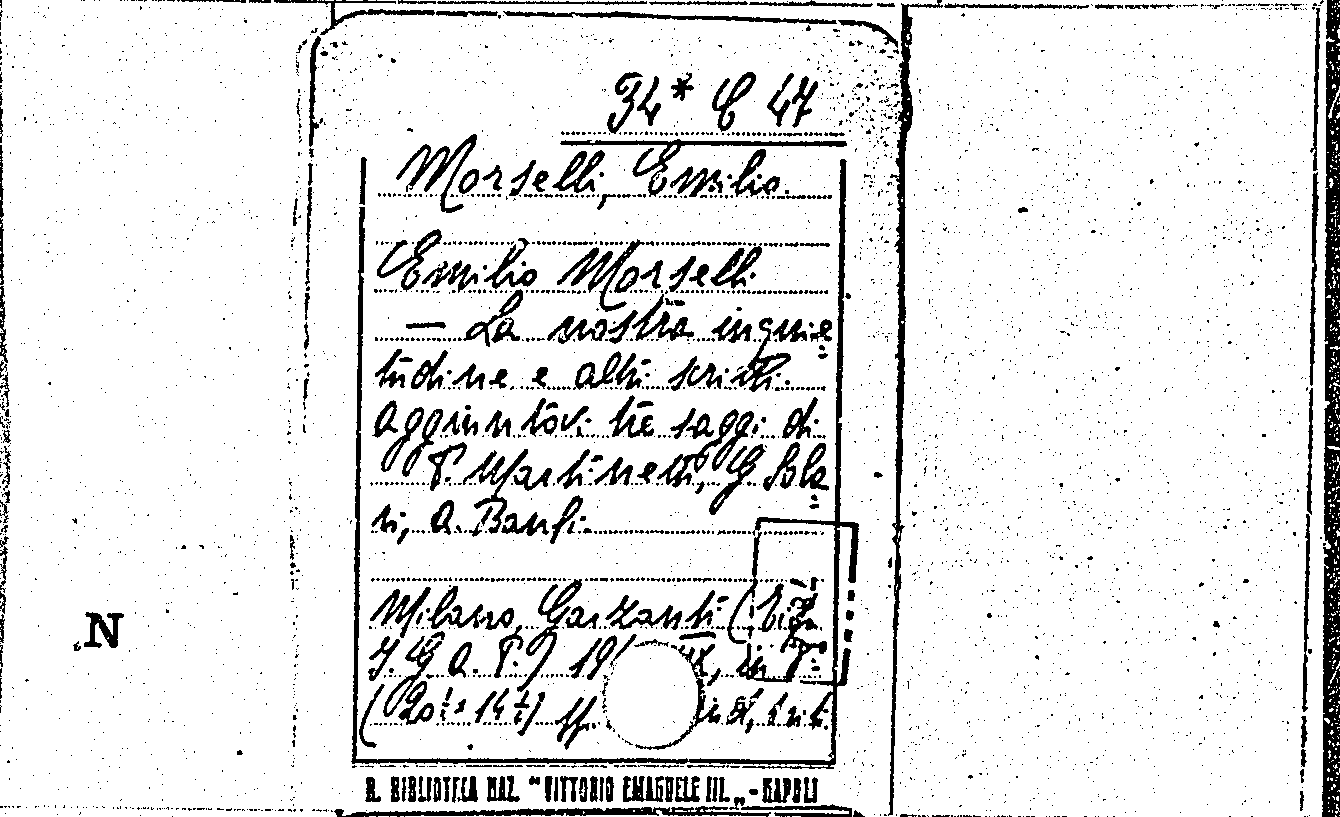 34* C 47
Morselli, Emilio.
Emilio Morselli
— La nostra inquie
tudine e altri scritti.
Aggiuntovi tre saggi di
P. Martinetti, G. Sola
ri, A. Banfi.
Milano, Garzanti (Tip.
I. G. A. P.) 19 XX, in
(20 14 pp.
N
R. BIBLIOTECA NAZ. "VITTORIO EMANUELE III." - NAPOLI